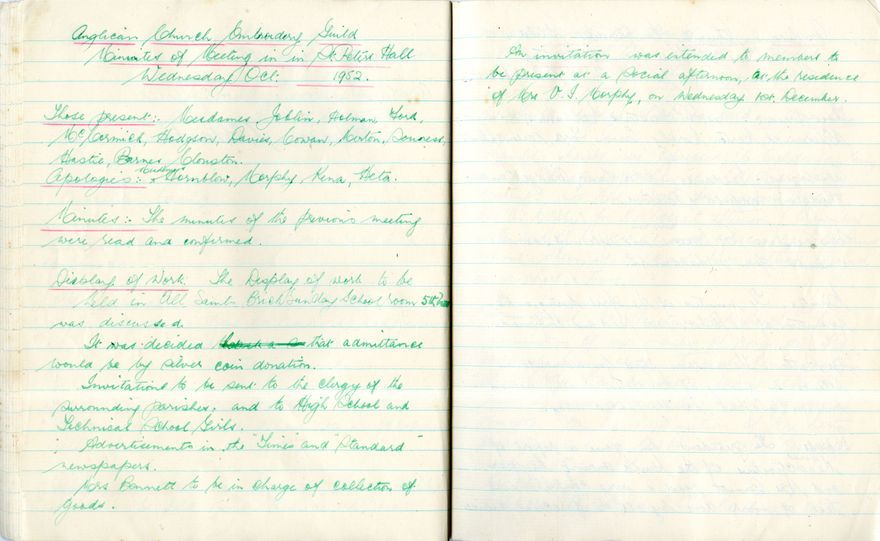 Anglican Church Embroidery Guild
Minutes of Meeting in in St Peters Hall
Wednesday Oct. 1952.
Those present:- Mesdames Joblin, Holman, Ford,
McCormick, Hodgson, Davies, Cowan, Morton,
Hastie, Barnes, Clouston.
Apologies:- Mesdames Hornblow, Morphy, Rena, Heta.
Minutes:- The minutes of the previous meeting
were read and confirmed.
Display of Work The Display of work to be
held in All Saints Brich Sunday School room 5th
was discussed.
It was decided that admittance
would be by silver coin donation.
Invitations to be sent to the clergy of the
surrounding parishes, and to High School and
Technical School Girls.
Advertisements in the "Times" and Standard"
newspapers.
Mrs Bennett to be in charge of collection of
goods.
An invitation was extended to members to
be present at a social afternoon, at the residence
of Mrs V. I. Morphy, on Wednesday 10th December.